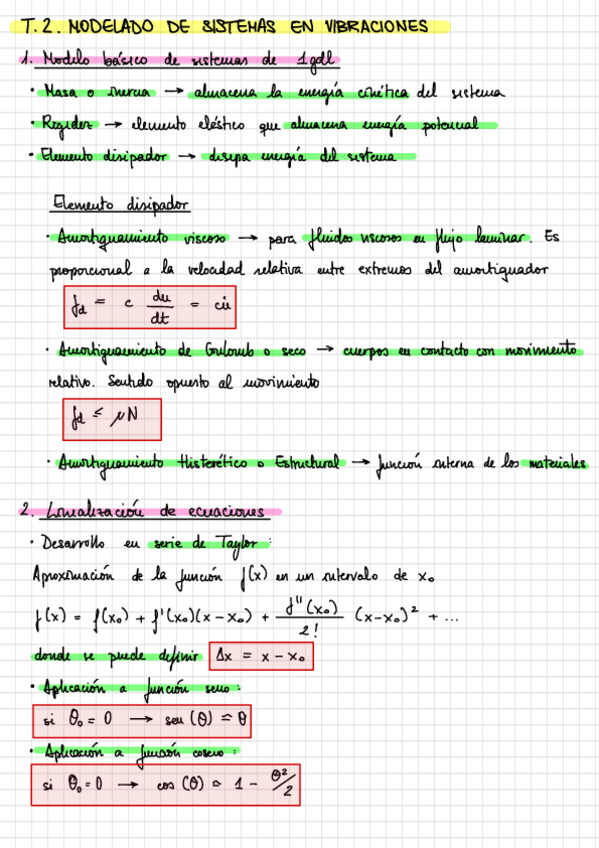 T.2. MODELADO DE SISTEMAS EN VIBRACIONES
1. Modelo básico de sistemas de 1gdl
· Masa o inercia → almacena la energía cinética del sistema
· Rigidez → elemento elástico que almacena energía potencial
· Elemento disipador → disipa energía del sistema
Elemento disipador
· Amortiguamiento viscoso → para fluidos viscosos en flujo laminar. Es
proporcional a la velocidad relativa entre extremos del amortiguador
fd = c du/dt = cu̇
· Amortiguamiento de Coulomb o seco → cuerpos en contacto con movimiento
relativo. Sentido opuesto al movimiento
fd ≤ μN
· Amortiguamiento Histerético o Estructural → función interna de los materiales
2. Linealización de ecuaciones
· Desarrollo en serie de Taylor:
Aproximación de la función f(x) en un intervalo de x₀
f(x) = f(x₀) + f'(x₀)(x-x₀) + f''(x₀)/2! (x-x₀)² + ...
donde se puede definir Δx = x - x₀
· Aplicación a función seno:
si θ₀ = 0 → sen(θ) ≃ θ
· Aplicación a función coseno:
si θ₀ = 0 → cos(θ) ≃ 1 - θ²/2